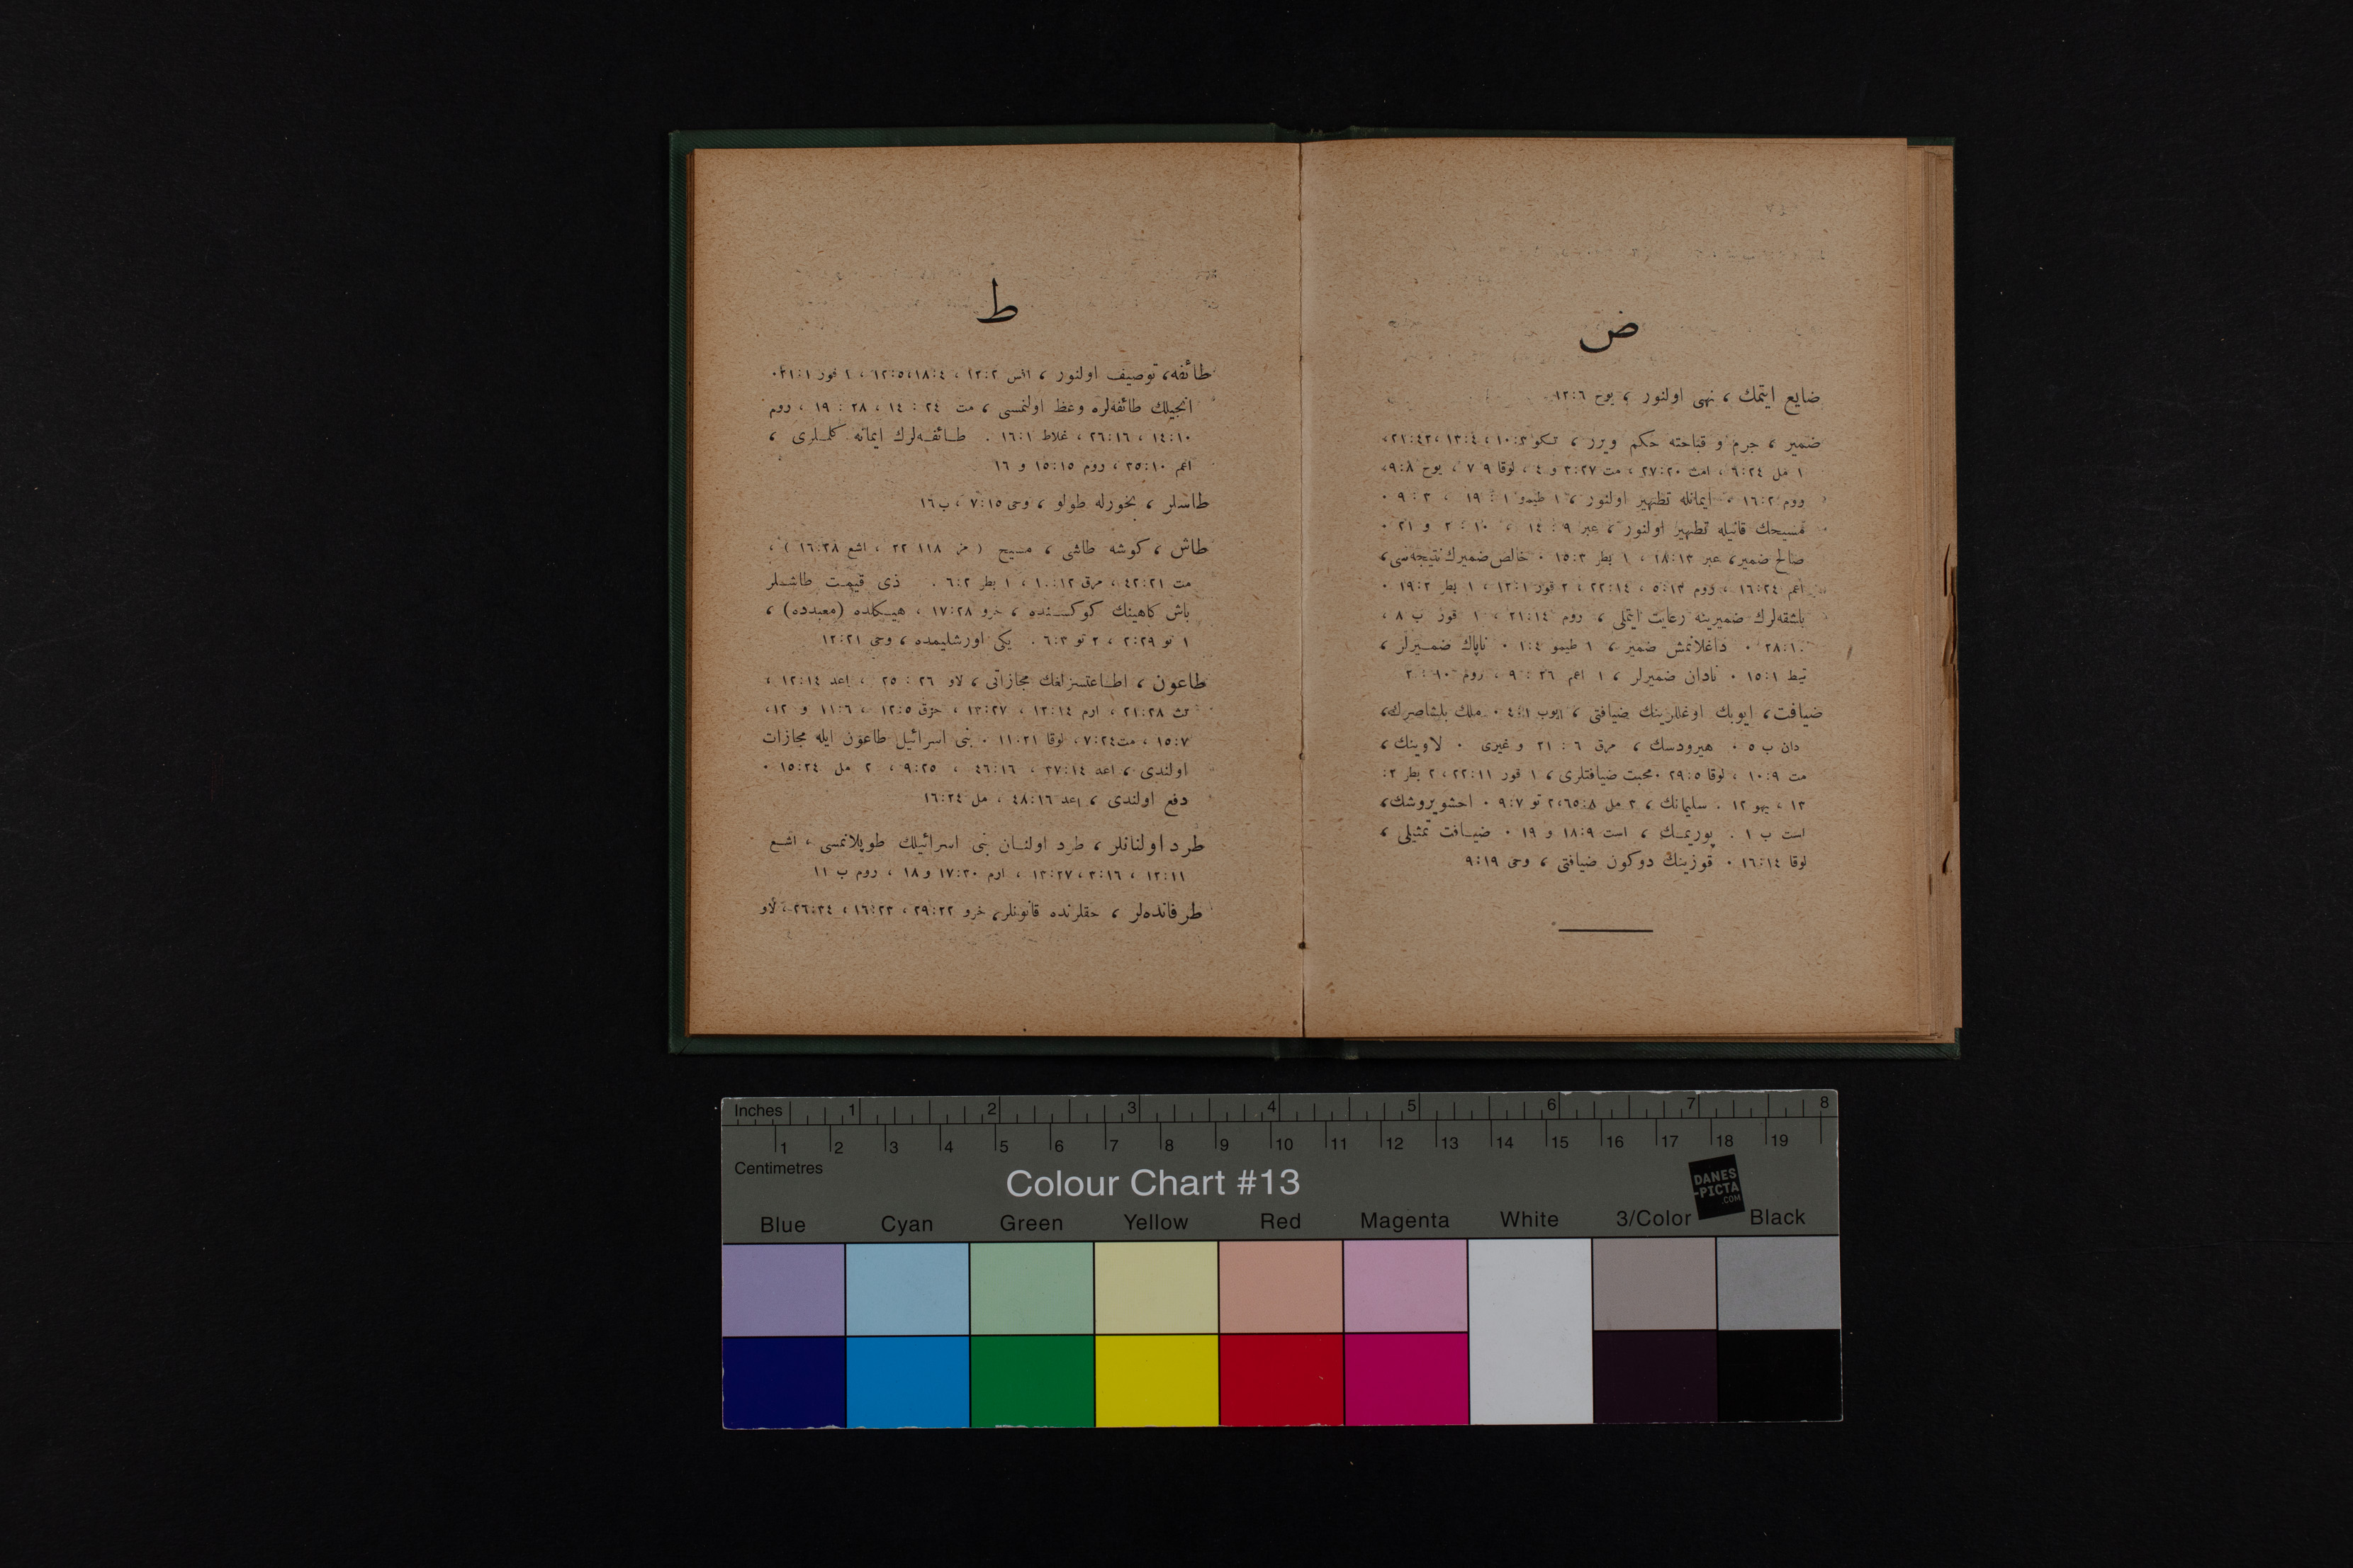 ض
ضايع ايتمك ، نهى اولنور ، يوح ٦:‏١٢
ضمير ، جرم و قباحته حكم ويرر ، تكو ٣:‏١٠ ، ٤:‏١٣ ، ٤٢:‏٢١،
١ مل ٢٤:‏٦ ، امث ٢٠:‏٢٧ ، مت ٢٧:‏٣ و ٤ ، لوقا ٩ ٧ ، يوح ٨:‏٩،
روم ٢:‏١٦ ، ايمانله تطهير اولنور ، ١ طيمو ١ : ١٩ ، ٣ : ٩ .
مسيحك قانيله تطهير اولنور ، عبر ٩ : ١٤ ، ١٠ : ٢ و ٢١ .
صالح ضمير ، عبر ١٣:‏١٨ ، ١ بطر ٣:‏١٥ . خالص ضميرك نتيجه‌سى ،
اعم ٢٤:‏١٦ ، روم ١٣:‏٥ ، ١٤:‏٢٢ ، ٢ قور ١:‏١٢ ، ١ بطر ٢:‏١٩ .
باشقه‌لرك ضميرينه رعايت ايتملى ، روم ١٤:‏٢١ ، ١ قور ب ٨ ،
١٠:‏٢٨ . داغلانمش ضمير ، ١ طيمو ٤:‏١ . ناپاك ضميرلر ،
تيط ١:‏١٥ . نادان ضميرلر ، ١ اعم ٢٦ : ٩ ، روم ١٠ : ٢
ضيافت ، ايوبك اوغللرينك ضيافتى ، ايوب ١:‏٤ . ملك بلشاصرك،
دان ب ٥ . هيرودسك ، مرق ٦ : ٢١ وغيرى . لاوينك ،
مت ٩:‏١٠ ، لوقا ٥:‏٢٩ . محبت ضيافتلرى ، ١ قور ١١:‏٢٢ ، ٢ بطر ٢:
١٣ ، يهو ١٢ . سليمانك ، ٢ مل ٨:‏٦٥، ٢ تو ٧:‏٩ . احشويروشك،
است ب ١ . پوريمك ، است ٩:‏١٨ و ١٩ . ضيافت تمثيلى ،
لوقا ١٤:‏١٦ . قوزينك دوكون ضيافتى ، وحى ١٩:‏٩
ط
طائفه، توصيف اولنور ، افس ٢:‏١٢ ، ٤:‏١٨، ٥:‏١٢ ، ١ قور ١:‏٢١ .
انجيلك طائفه‌لره وعظ اولنمسى ، مت ٢٤ : ١٤ ، ٢٨ : ١٩ ، روم
١٠:‏١٤ ، ١٦:‏٢٦ ، غلاط ١:‏١٦ . طائفه‌لرك ايمانه كلملرى ،
اعم ١٠:‏٣٥ ، روم ١٥:‏١٥ و ١٦
طاسلر ، بخورله طولو ، وحى ١٥:‏٧ ، ب ١٦
طاش ، كوشه طاشى ، مسيح ( مز ١١٨ ٢٢ ، اشع ٢٨:‏١٦ ) ،
مت ٢١:‏٤٢ ، مرق ١٢:‏١٠ ، ١ بطر ٢:‏٦ . ذى قيمت طاشلر
باش كاهينك كوكسنده ، خرو ٢٨:‏١٧ ، هيكلده (معبدده) ،
١ تو ٢٩:‏٢ ، ٢ تو ٣:‏٦ . يكى اورشليمده ، وحى ٢١:‏١٢
طاعون ، اطاعتسزلغك مجازاتى ، لاو ٢٦ : ٢٥ ، اعد ١٤:‏١٢ ،
تث ٢٨:‏٢١ ، ارم ١٤:‏١٢ ، ٢٧:‏١٣ ، حزق ٥:‏١٢ ، ٦:‏١١ و ١٢،
٧:‏١٥ ، مت ٢٤:‏٧ ، لوقا ٢١:‏١١ . بنى اسرائيل طاعون ايله مجازات
اولندى ، اعد ١٤:‏٣٧ ، ١٦:‏٤٦ ، ٢٥:‏٩ ، ٢ مل ٢٤:‏١٥ .
دفع اولندى ، اعد ١٦:‏٤٨ ، مل ٢٤:‏١٦
طرد اولنانلر ، طرد اولنان بنى اسرائيلك طوپلانمسى ، اشع
١١:‏١٢ ، ١٦:‏٣ ، ٢٧:‏١٣ ، ارم ٣٠:‏١٧ و ١٨ ، روم ب ١١
طرفانده‌لر ، حقلرنده قانونلر، خرو ٢٢:‏٢٩ ، ٢٣:‏١٦ ، ٣٤:‏٢٦ ، لاو
Inches 1 2 3 4 5 6 7 8
1 2 3 4 5 6 7 8 9 10 11 12 13 14 15 16 17 18 19
Centimetres
Colour Chart #13
DANES
-PICTA
.COM
Blue Cyan Green Yellow Red Magenta White 3/Color Black